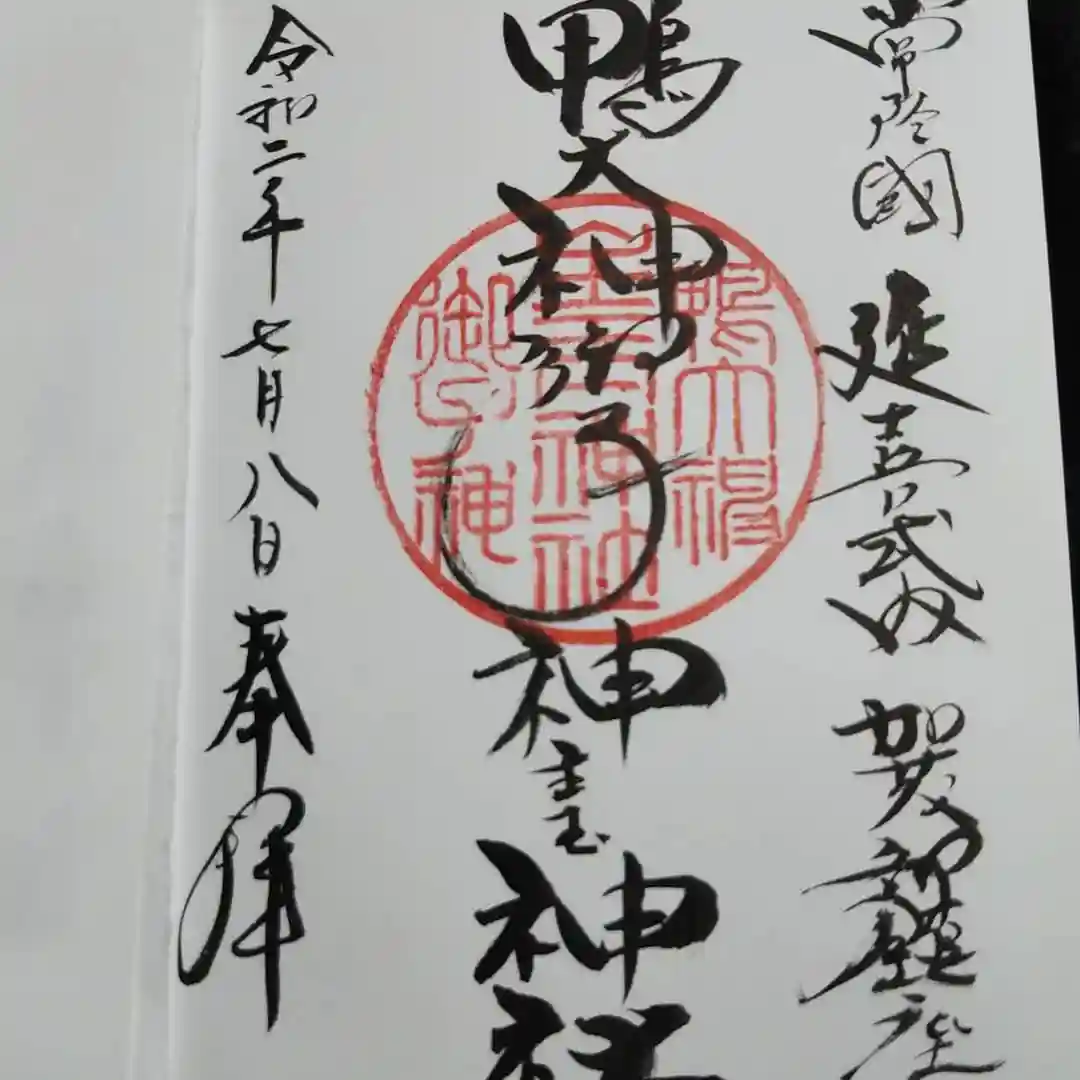 常陸國 延喜式内 賀茂部鎮座
鴨大神御子神主玉神社
鴨大神
主玉神社
御子神
令和二年七月八日 奉拜